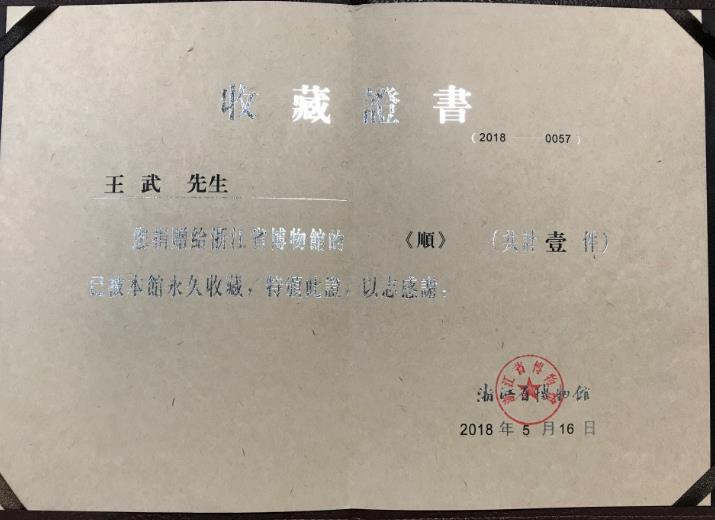 收藏證書
(2018 — 0057)
王武 先生
您捐贈給浙江省博物館的 《順》 (共計壹件)
已被本館永久收藏，特頒此證，以志感謝。
浙江省博物館
浙江省博物館
2018年5月16日